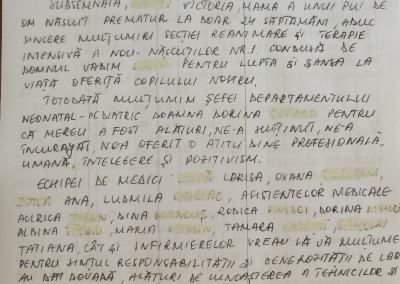 SUBSEMNATA, VICTORIA, MAMA A UNUI PUI DE
OM NĂSCUT PREMATUR LA DOAR 24 SĂPTĂMÂNI, ADUC
SINCERE MULȚUMIRI SECȚIEI REANIMARE ȘI TERAPIE
INTENSIVĂ A NOU-NĂSCUȚILOR NR.1 CONDUSĂ DE
DOMNUL VADIM PENTRU LUPTA ȘI ȘANSA LA
VIAȚĂ OFERITĂ COPILULUI NOSTRU.
TOTODATĂ MULȚUMIM ȘEFEI DEPARTAMENTULUI
NEONATAL-PEDIATRIC DOAMNA DORINA PENTRU
CĂ MEREU A FOST ALĂTURI, NE-A SUSȚINUT, NE-A
ÎNCURAJAT, NE-A OFERIT O ATITUDINE PROFESIONALĂ,
UMANĂ, ÎNȚELEGERE ȘI POZITIVISM.
ECHIPEI DE MEDICI LORISA, OXANA
ANA, LUDMILA, ASISTENTELOR MEDICALE
AURICA, DINA, RODICA, DORINA
ALBINA, MARIA, TAMARA
TATIANA, CÂT ȘI INFIRMIERELOR VREAU SĂ VĂ MULȚUMESC
PENTRU SIMȚUL RESPONSABILITĂȚII ȘI GENEROZITĂȚII DE CARE
AU DAT DOVADĂ, ALĂTURI DE CUNOAȘTEREA TEHNICILOR ȘI